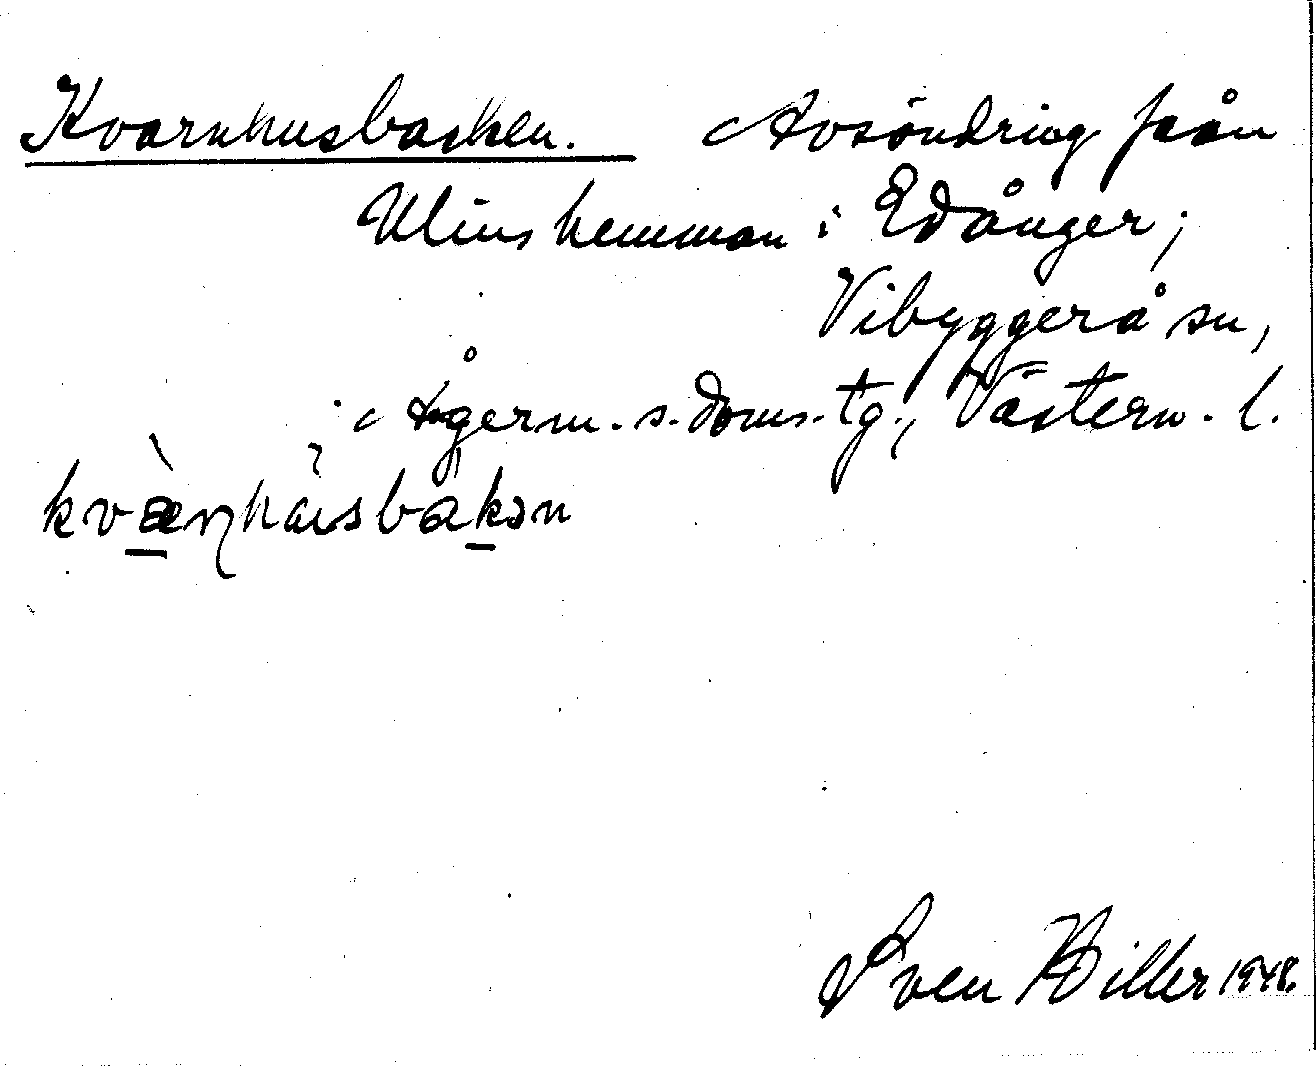 Kvarnhusbacken. Avsöndring från
Ulins hemman i Edånger;
Vibyggerå sn,
Ångerm. s. doms. tg., Västern. l.
kvæ̀ɳhúsbakən
Sven Hiller 1948.